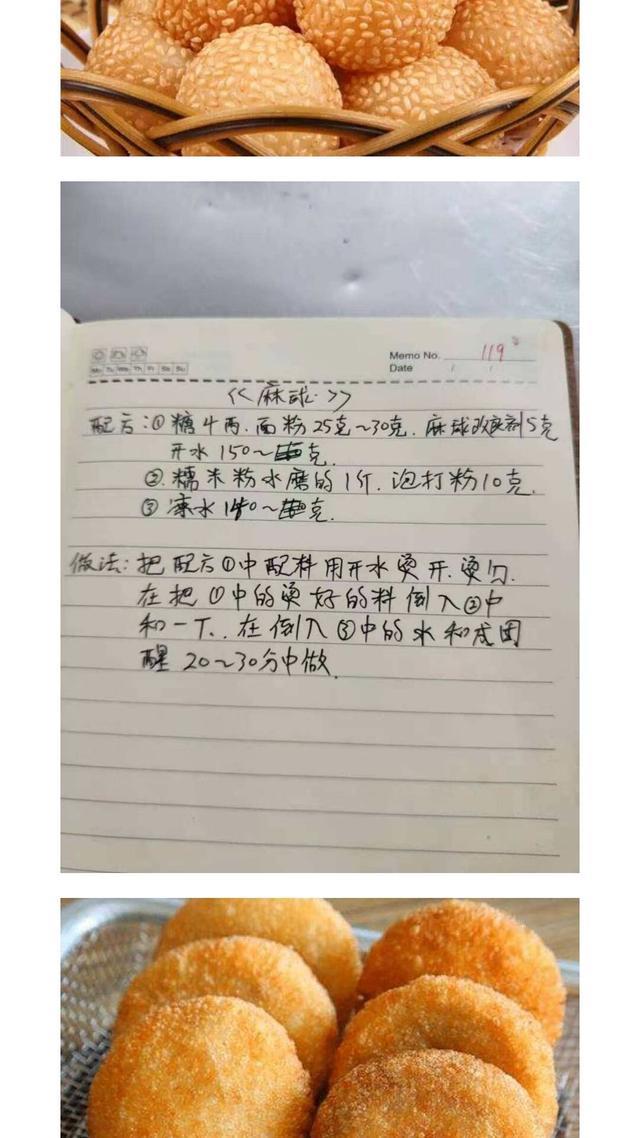 Memo No. 119
Mo Tu We Th Fr Sa Su
Date / /
<<麻球>>
配方:①糖4两.面粉25克~30克.麻球改良剂5克
开水150~克.
②.糯米粉水磨的1斤.泡打粉10克.
③凉水140~克.
做法:把配方①中配料用开水烫开.烫匀.
在把①中的烫好的料倒入②中
和一下..在倒入③中的水和成团
醒20~30分中做.